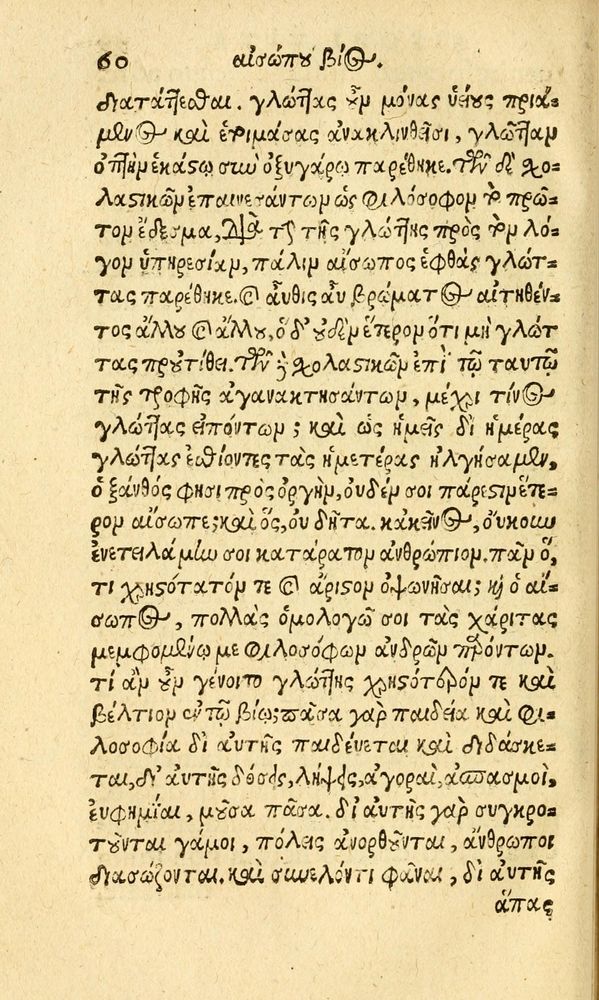 60 αἰσώπου βίος.
διατάττεσθαι. γλώττας οὖν μόνας ὑείους πριά-
μενος καὶ ἑτοιμάσας ἀνακλινθεῖσι, γλῶτταν
ὀπτὴν ἑκάστῳ σὺν ὀξυγάρῳ παρέθηκε. τῶν δὲ χο-
λαστικῶν ἐπαινεσάντων ὡς φιλόσοφον τὸ πρῶ-
τον ἔδεσμα, διὰ τὴν τῆς γλώττης πρὸς τὸν λό-
γον ὑπηρεσίαν, πάλιν αἴσωπος ἑφθὰς γλώτ-
τας παρέθηκε. καὶ αὖθις αὖ βρώματος αἰτηθέν-
τος ἄλλου καὶ ἄλλου, ὁ δ' οὐδὲν ἕτερον ὅτι μὴ γλώτ
τας προὐτίθει. τῶν δὲ χολαστικῶν ἐπὶ τῷ ταυτῷ
τῆς τροφῆς ἀγανακτησάντων, μέχρι τίνος
γλώττας εἰπόντων; καὶ ὡς ἡμεῖς δι ἡμέρας
γλώττας ἐσθίοντες τὰς ἡμετέρας ἠλγήσαμεν,
ὁ ξάνθός φησι πρὸς ὀργὴν, οὐδέν σοι πάρεστιν ἕτε-
ρον αἴσωπε; καὶ ὅς, οὐ δῆτα. κἀκεῖνος, οὔκουν
ἐνετειλάμην σοι κατάρατον ἀνθρώπιον. πᾶν ὅ,
τι χρηστότατόν τε καὶ ἄριστον ὀψωνῆσαι; καὶ ὁ αἴ-
σωπος, πολλὰς ὁμολογῶ σοι τὰς χάριτας
μεμφομένῳ με φιλοσόφων ἀνδρῶν παρόντων.
τί ἂν οὖν γένοιτο γλώττης χρηστότερόν τε καὶ
βέλτιον ἐν τῷ βίῳ; πᾶσα γὰρ παιδεία καὶ φι-
λοσοφία δι αὐτῆς παιδεύεται καὶ διδάσκε-
ται, δι' αὐτῆς δόσεις, λήψεις, ἀγοραὶ, ἀσπασμοὶ,
εὐφημίαι, μοῦσα πᾶσα. δι αὐτῆς γὰρ συγκρο-
τοῦνται γάμοι, πόλεις ἀνορθοῦνται, ἄνθρωποι
διασώζονται. καὶ συνελόντι φάναι, δι αὐτῆς
ἅπας